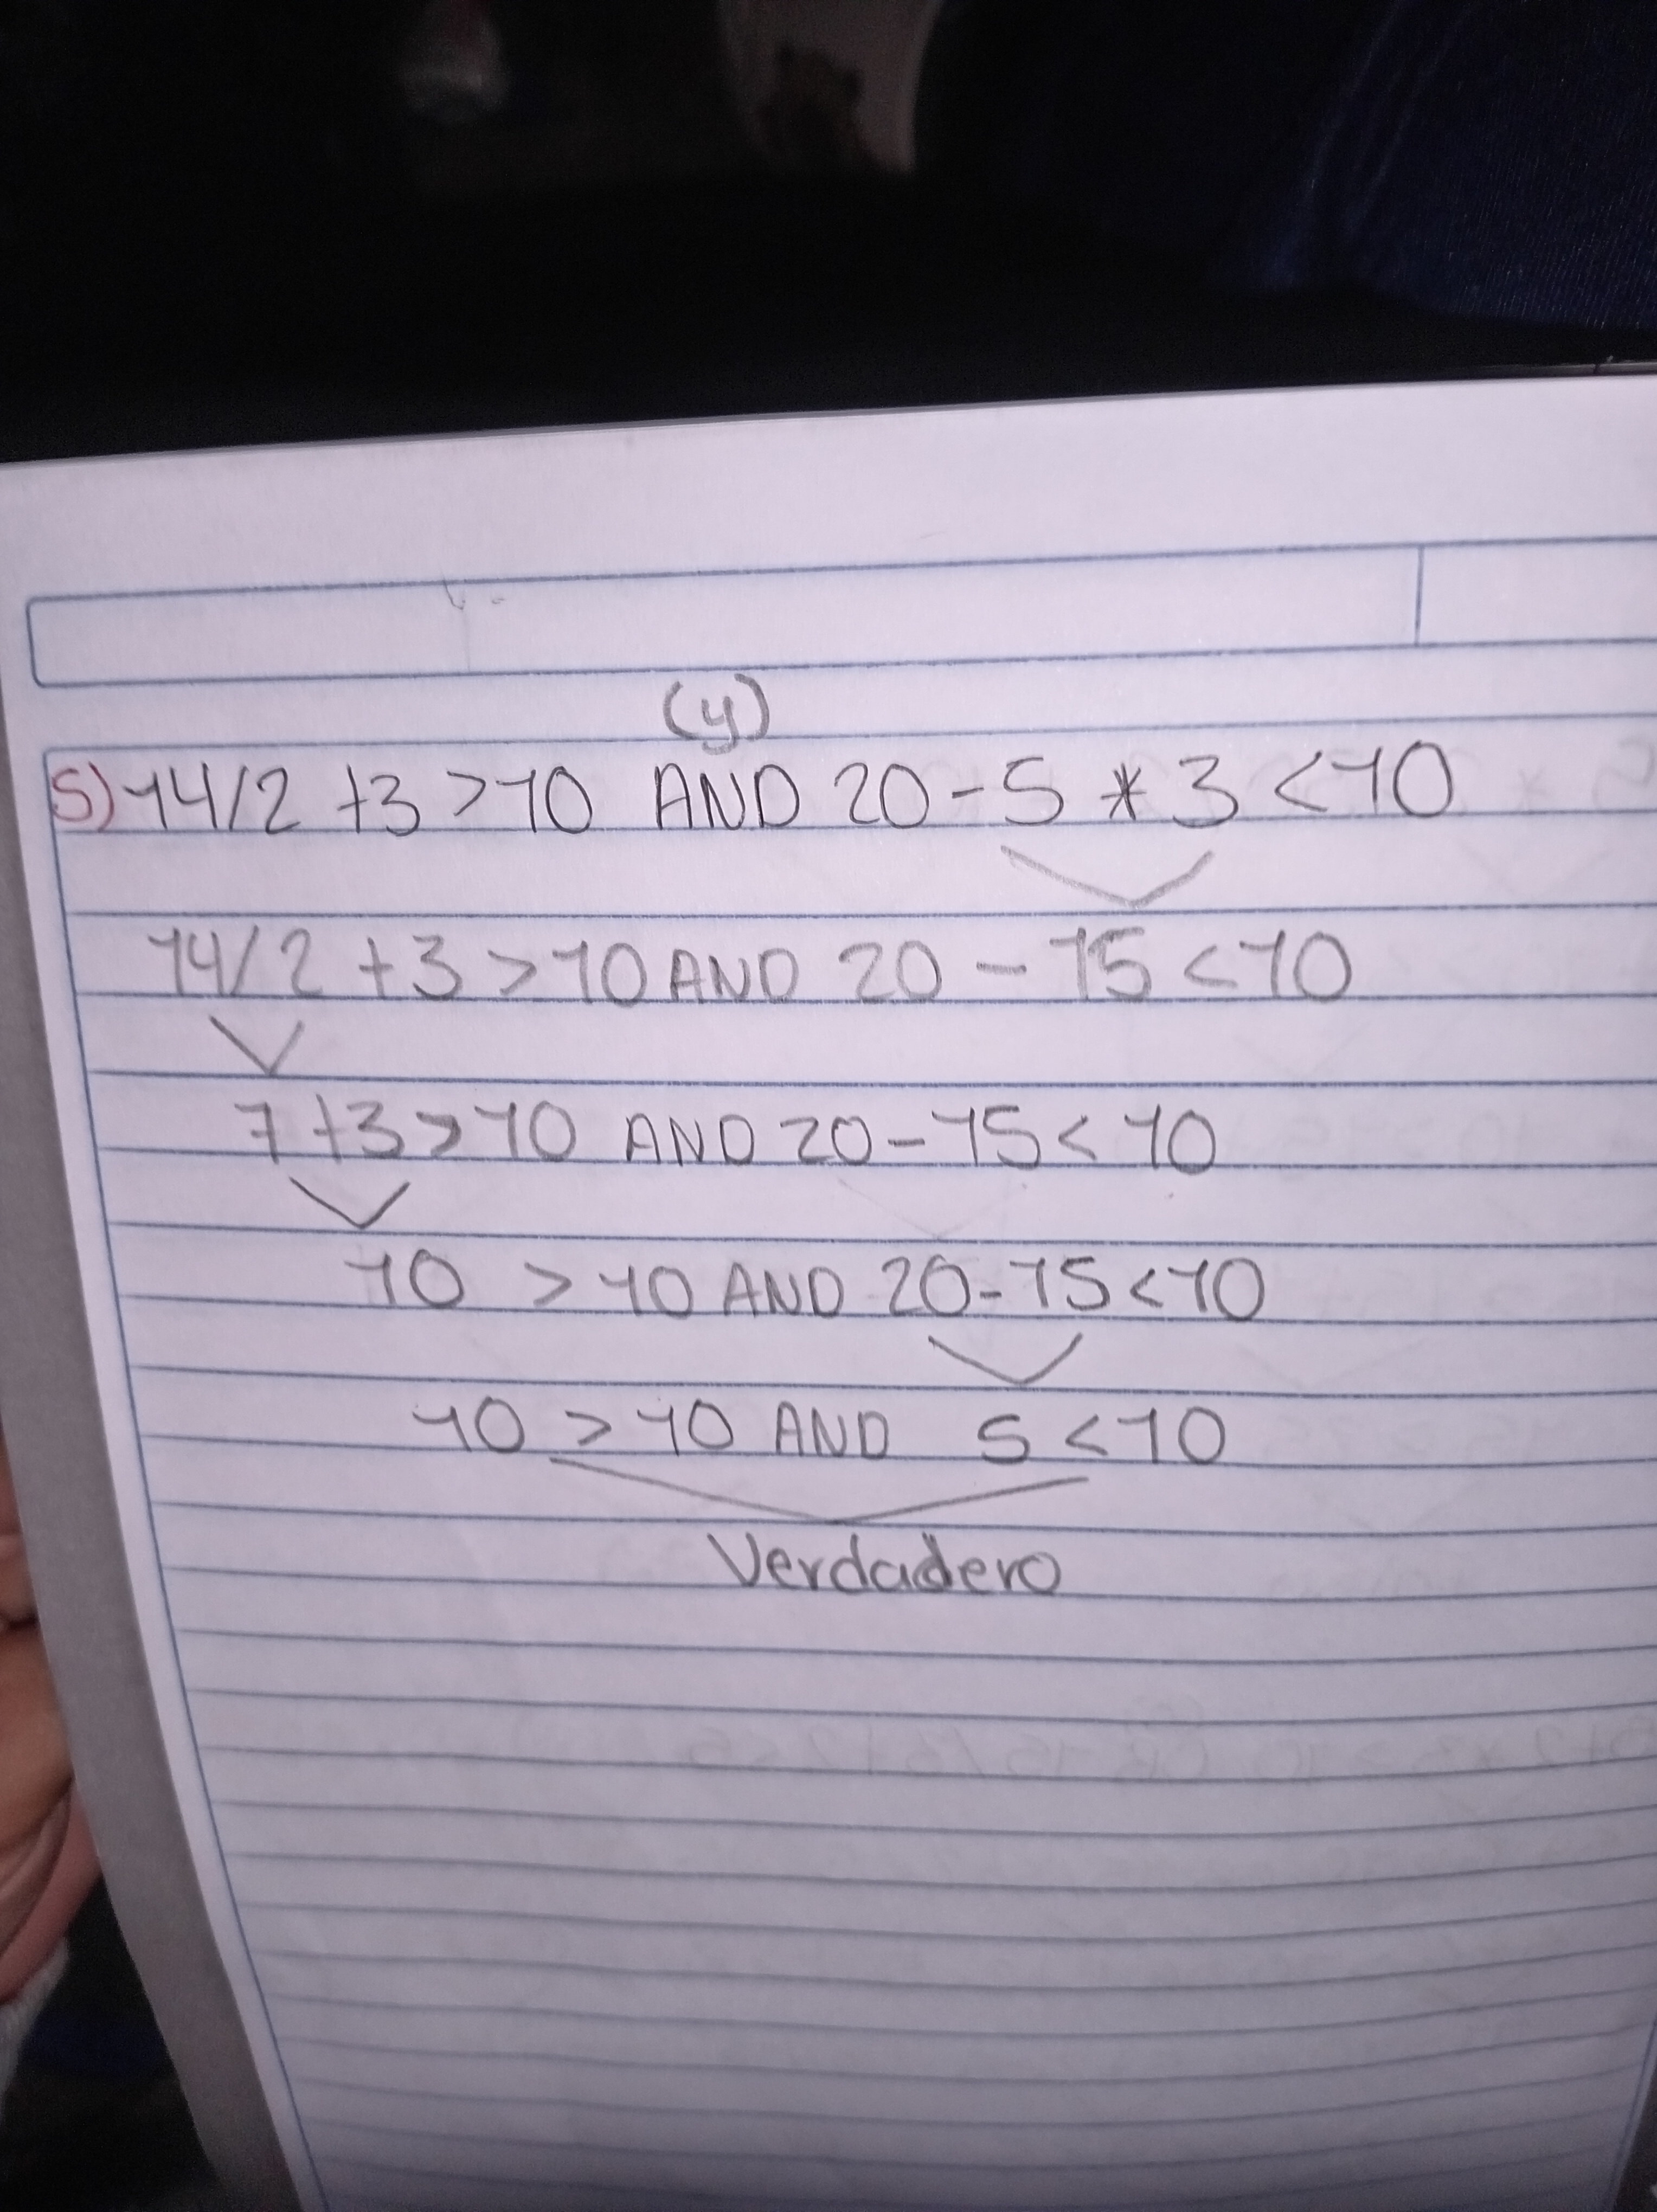 (y)
5) 14/2 +3 >10 AND 20 - 5 * 3 <10
14/2 +3 >10 AND 20 - 15 <10
7 +3 >10 AND 20 - 15 < 10
10 > 10 AND 20 - 15 <10
10 > 10 AND 5 <10
Verdadero